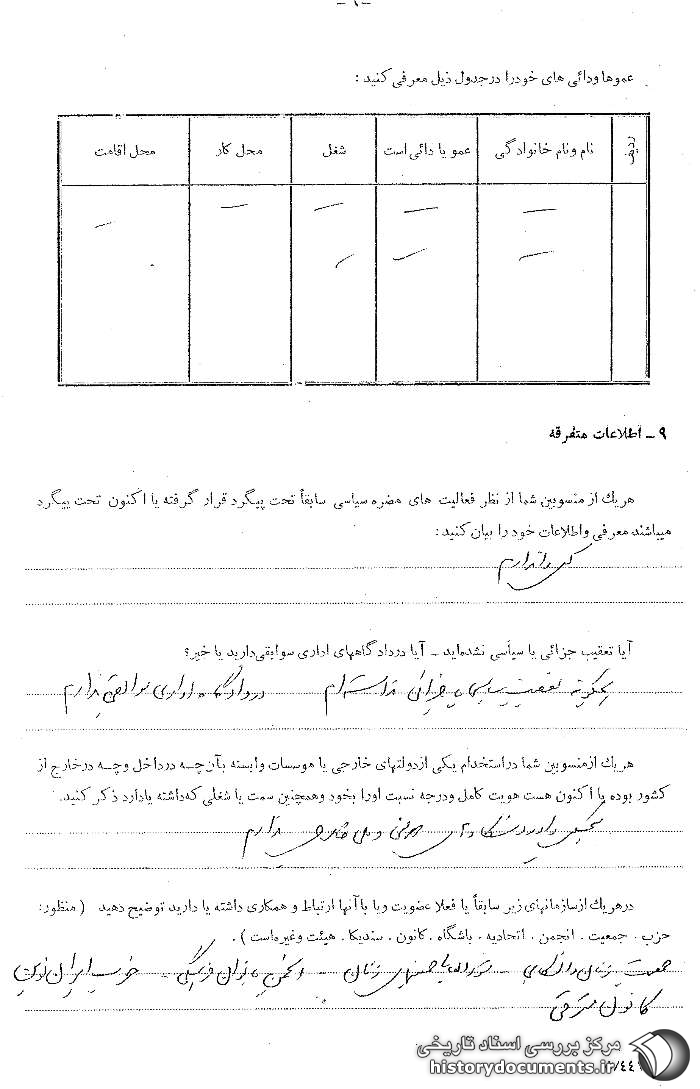 - ۱ -
عموها ودائی های خودرا درجدول ذیل معرفی کنید :
ردیف نام ونام خانوادگی عمو یا دائی است شغل محل کار محل اقامت
۹ ـ اطلاعات متفرقه
هریك از منسوبین شما از نظر فعالیت های مضره سیاسی سابقاً تحت پیگرد قرار گرفته یا اکنون تحت پیگرد
میباشند معرفی واطلاعات خود را بیان کنید :
ندارم
آیا تعقیب جزائی یا سیاسی نشده‌اید ـ آیا درداد گاههای اداری سوابقی دارید یا خیر؟
هیچگونه تعقیب سیاسی یا جزائی نداشته‌ام در دادگاه اداری سوابقی ندارم
هریك ازمنسوبین شما دراستخدام یکی ازدولتهای خارجی یا موسسات وابسته بآن چـه درداخل وچـه درخارج از
کشور بوده یا اکنون هست هویت کامل ودرجه نسبت اورا بخود وهمچنین سمت یا شغلی که‌داشته یادارد ذکر کنید.
ندارم
درهریك ازسازمانهای زیر سابقاً یا فعلا عضویت ویا باآنها ارتباط و همکاری داشته یا دارید توضیح دهید ( منظور:
حزب . جمعیت . انجمن . اتحادیه . باشگاه . کانون . سندیکا . هیئت وغیره‌است ) .
جمعیت زنان دانشگاهی - شورایعالی جمعیتهای زنان - انجمن بانوان فرهنگی - حزب ایران نوین
کانون مترقی
مرکز بررسی اسناد تاریخی
historydocuments.ir
۴۴